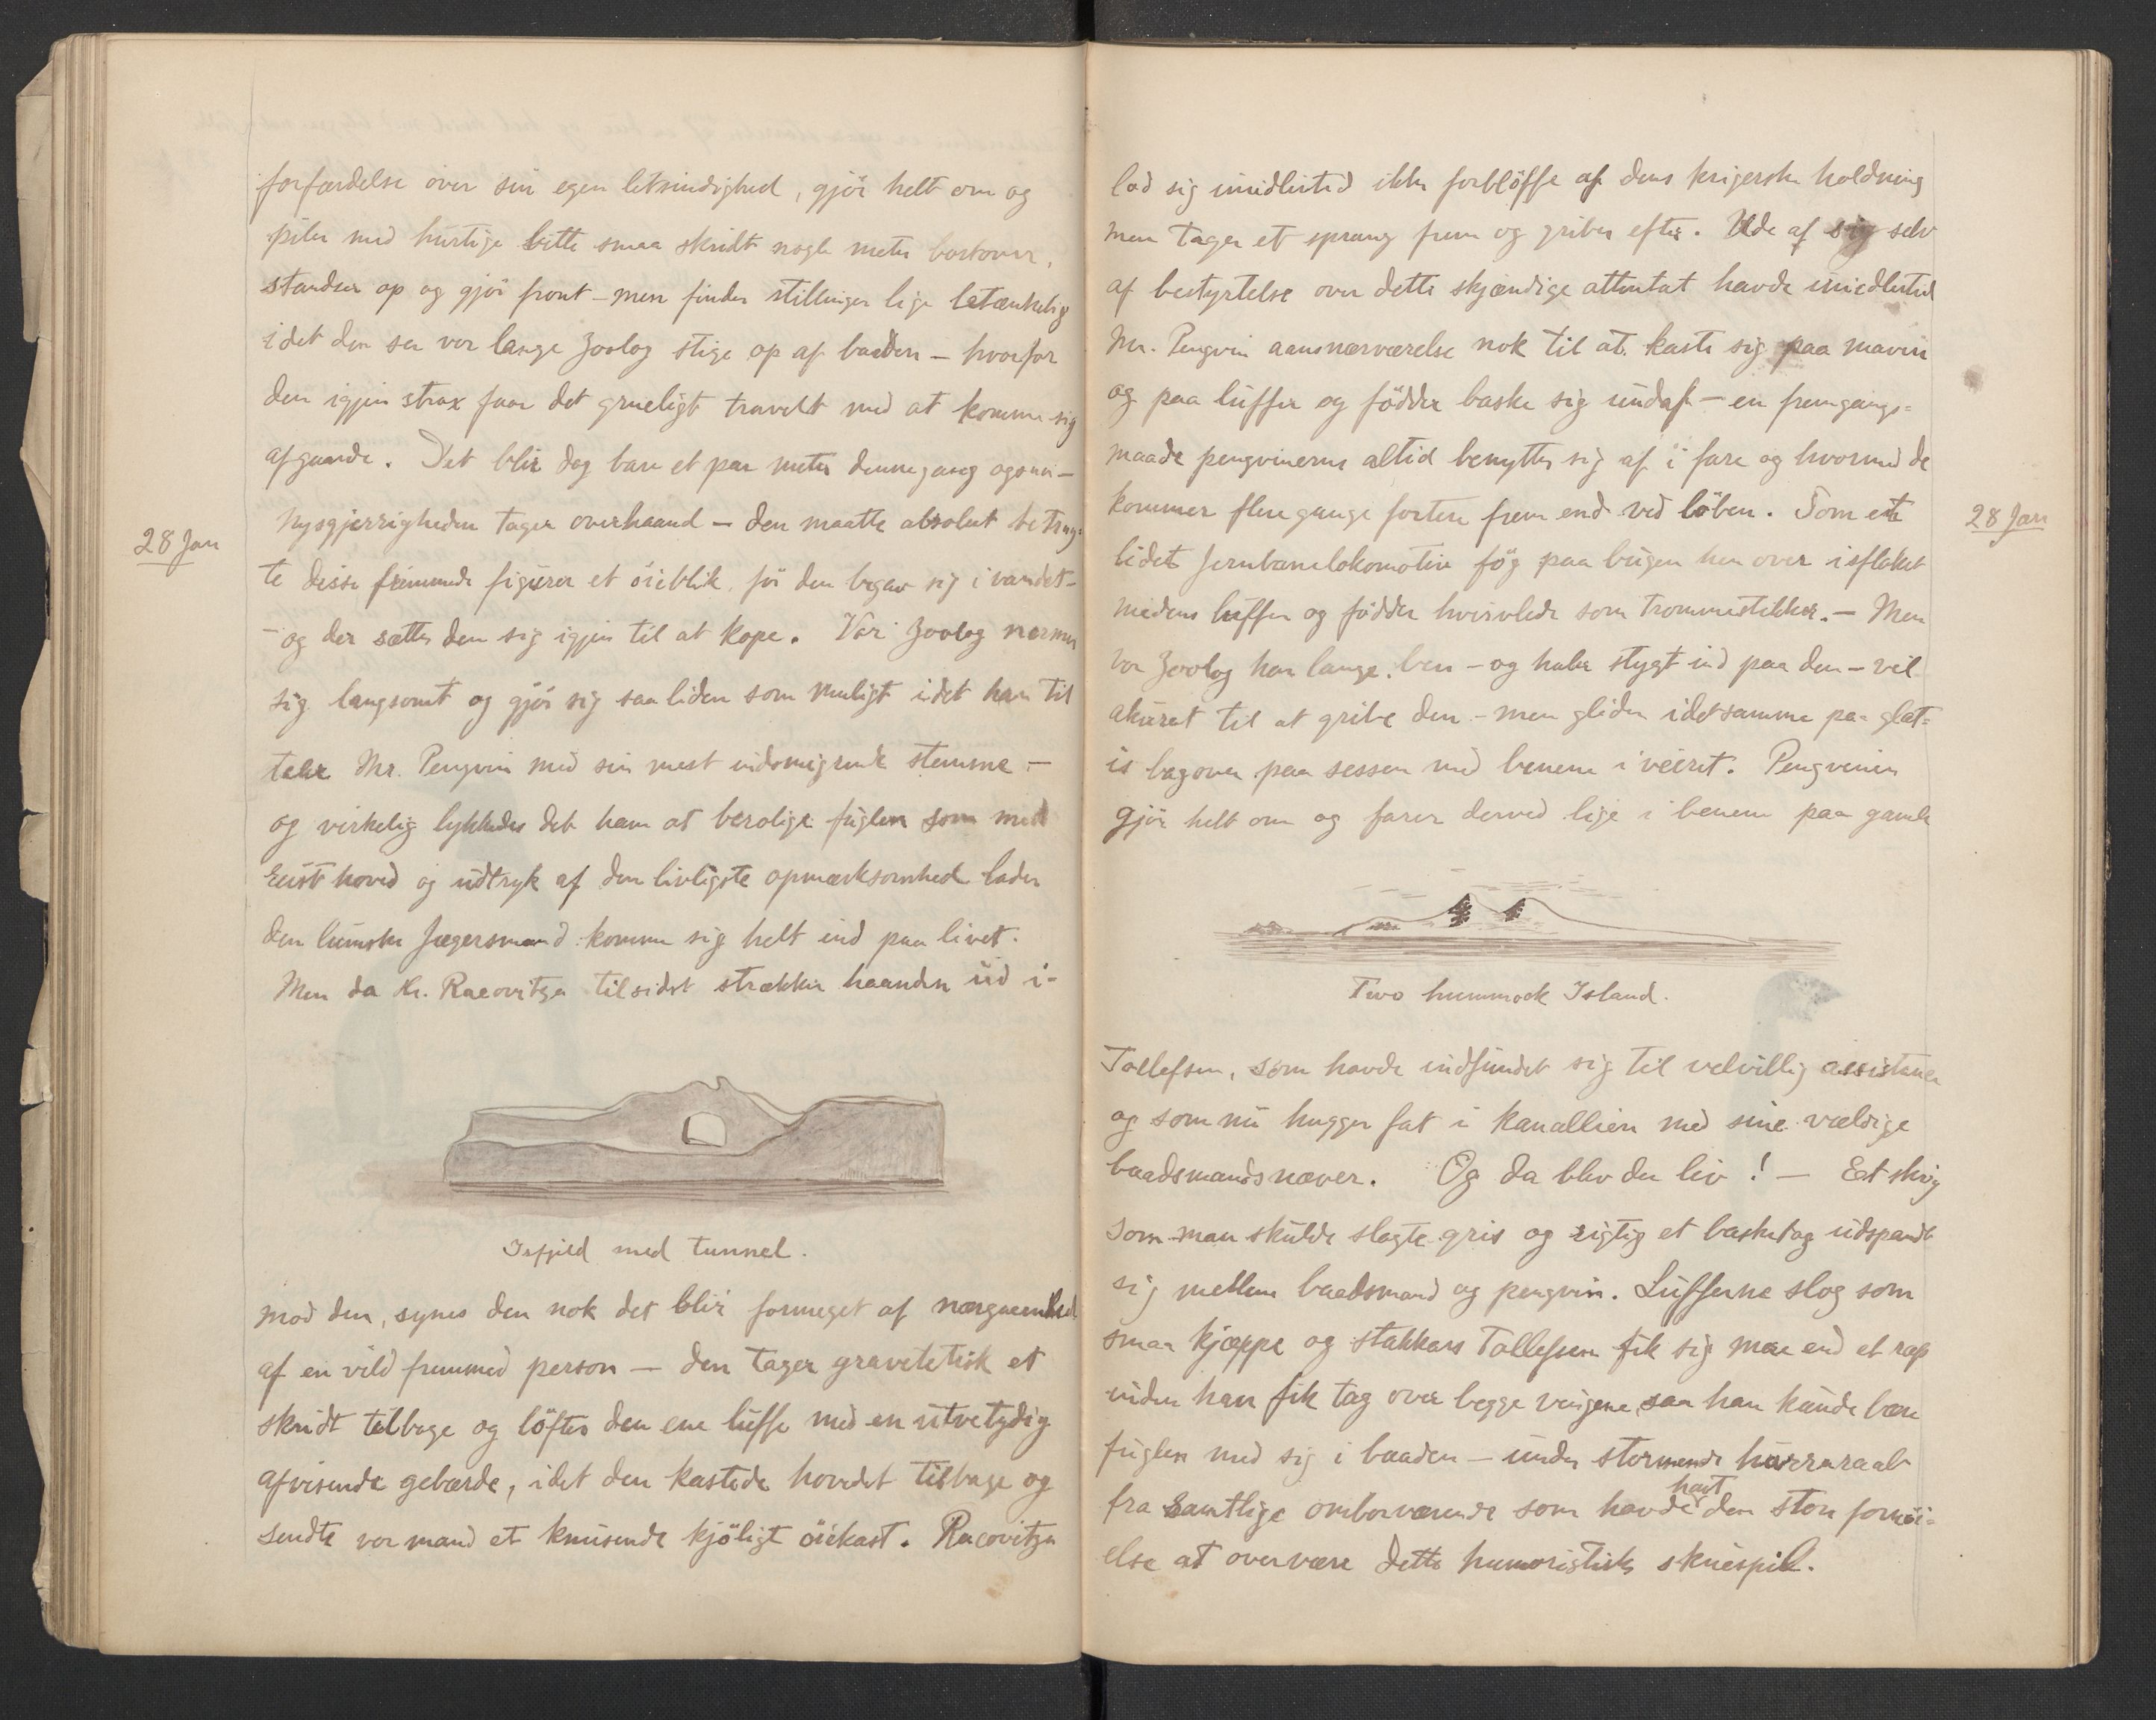 forfærdelse over sin egen letsindighed, gjör helt om og
piler med hurtige bitte smaa skridt nogle meter bortover,
standser op og gjör front – men finder stillingen lige betænkelig
idet den ser vor lange zoolog stige op af baaden – hvorfor
den igjen strax faar det grueligt travelt med at komme sig
afgaarde. Det blir dog bare et par meter dennegang ogsaa –
28 Jan
nysgjerrigheden tager overhaand – den maatte absolut betrag-
te disse fremmede figurer et öieblik, för den begav sig i vandet –
– og der sætter den sig igjen til at kope. Vor zoolog nermer
sig langsomt og gjör sig saa liden som muligt idet han til
taler Mr. Pengvin med sin mest indsmigrende stemme –
og virkelig lykkedes det ham at berolige fuglen som med
reist hoved og udtryk af den livligste opmærksomhed lader
den lumske Jægersmand komme sig helt ind paa livet.
Men da Hr. Racovitza tilsidst strækker haanden ud i-
Isfjeld med tunnel.
mod den, synes den nok det blir formeget af nærgaaenhed
af en vild fremmed person – den tager gravitetisk et
skridt tilbage og löfter den ene luffe med en utvetydig
afvisende gebærde, idet den kastede hovedet tilbage og
sendte vor mand et knusende kjöligt öiekast. Racovitza
lod sig imidlertid ikke forblöffe af dens krigerske holdning
men tager et sprang frem og griber efter. Ude af sig selv
af bestyrtelse over dette skjændige attentat havde imidlertid
Mr. Pengvin aansnærværelse nok til at kaste sig paa maven
og paa luffer og födder baske sig undaf – en fremgangs=
maade pengvinerne altid benytter sig af i fare og hvormed de
kommer flere gange fortere frem end ved löben. Som et
28 Jan
lidet Jernbanelokomotiv fög paa bugen hen over isflaket
medens luffer og födder hvirvlede som trommestikker. – Men
vor zoolog har lange ben – og haler stygt ind paa den – vil
akurat til at gribe den – men glider idetsamme paa glat=
is bagover paa sessen med benene i veiret. Pengvinen
gjör helt om og farer derved lige i benene paa gamle
Two hummock Island.
Tollefsen, som havde indfundet sig til velvillig assistance
og som nu hugger fat i kanallien med sine vældige
baadsmandsnæver. Og da blev der liv! – Et skrig
som man skulde slagte gris og rigtig et basketag udspandt
sig mellem baadsmand og pengvin. Lufferne slog som
smaa kjæppe og stakkars Tollefsen fik sig mere end et rap
inden han fik tag over begge vingene, saa han kunde bære
fuglen med sig i baaden – under stormende hurraraab
fra samtlige omborværende som havde havt den store fornöi=
else at overvære dette humoristiske skuespil.